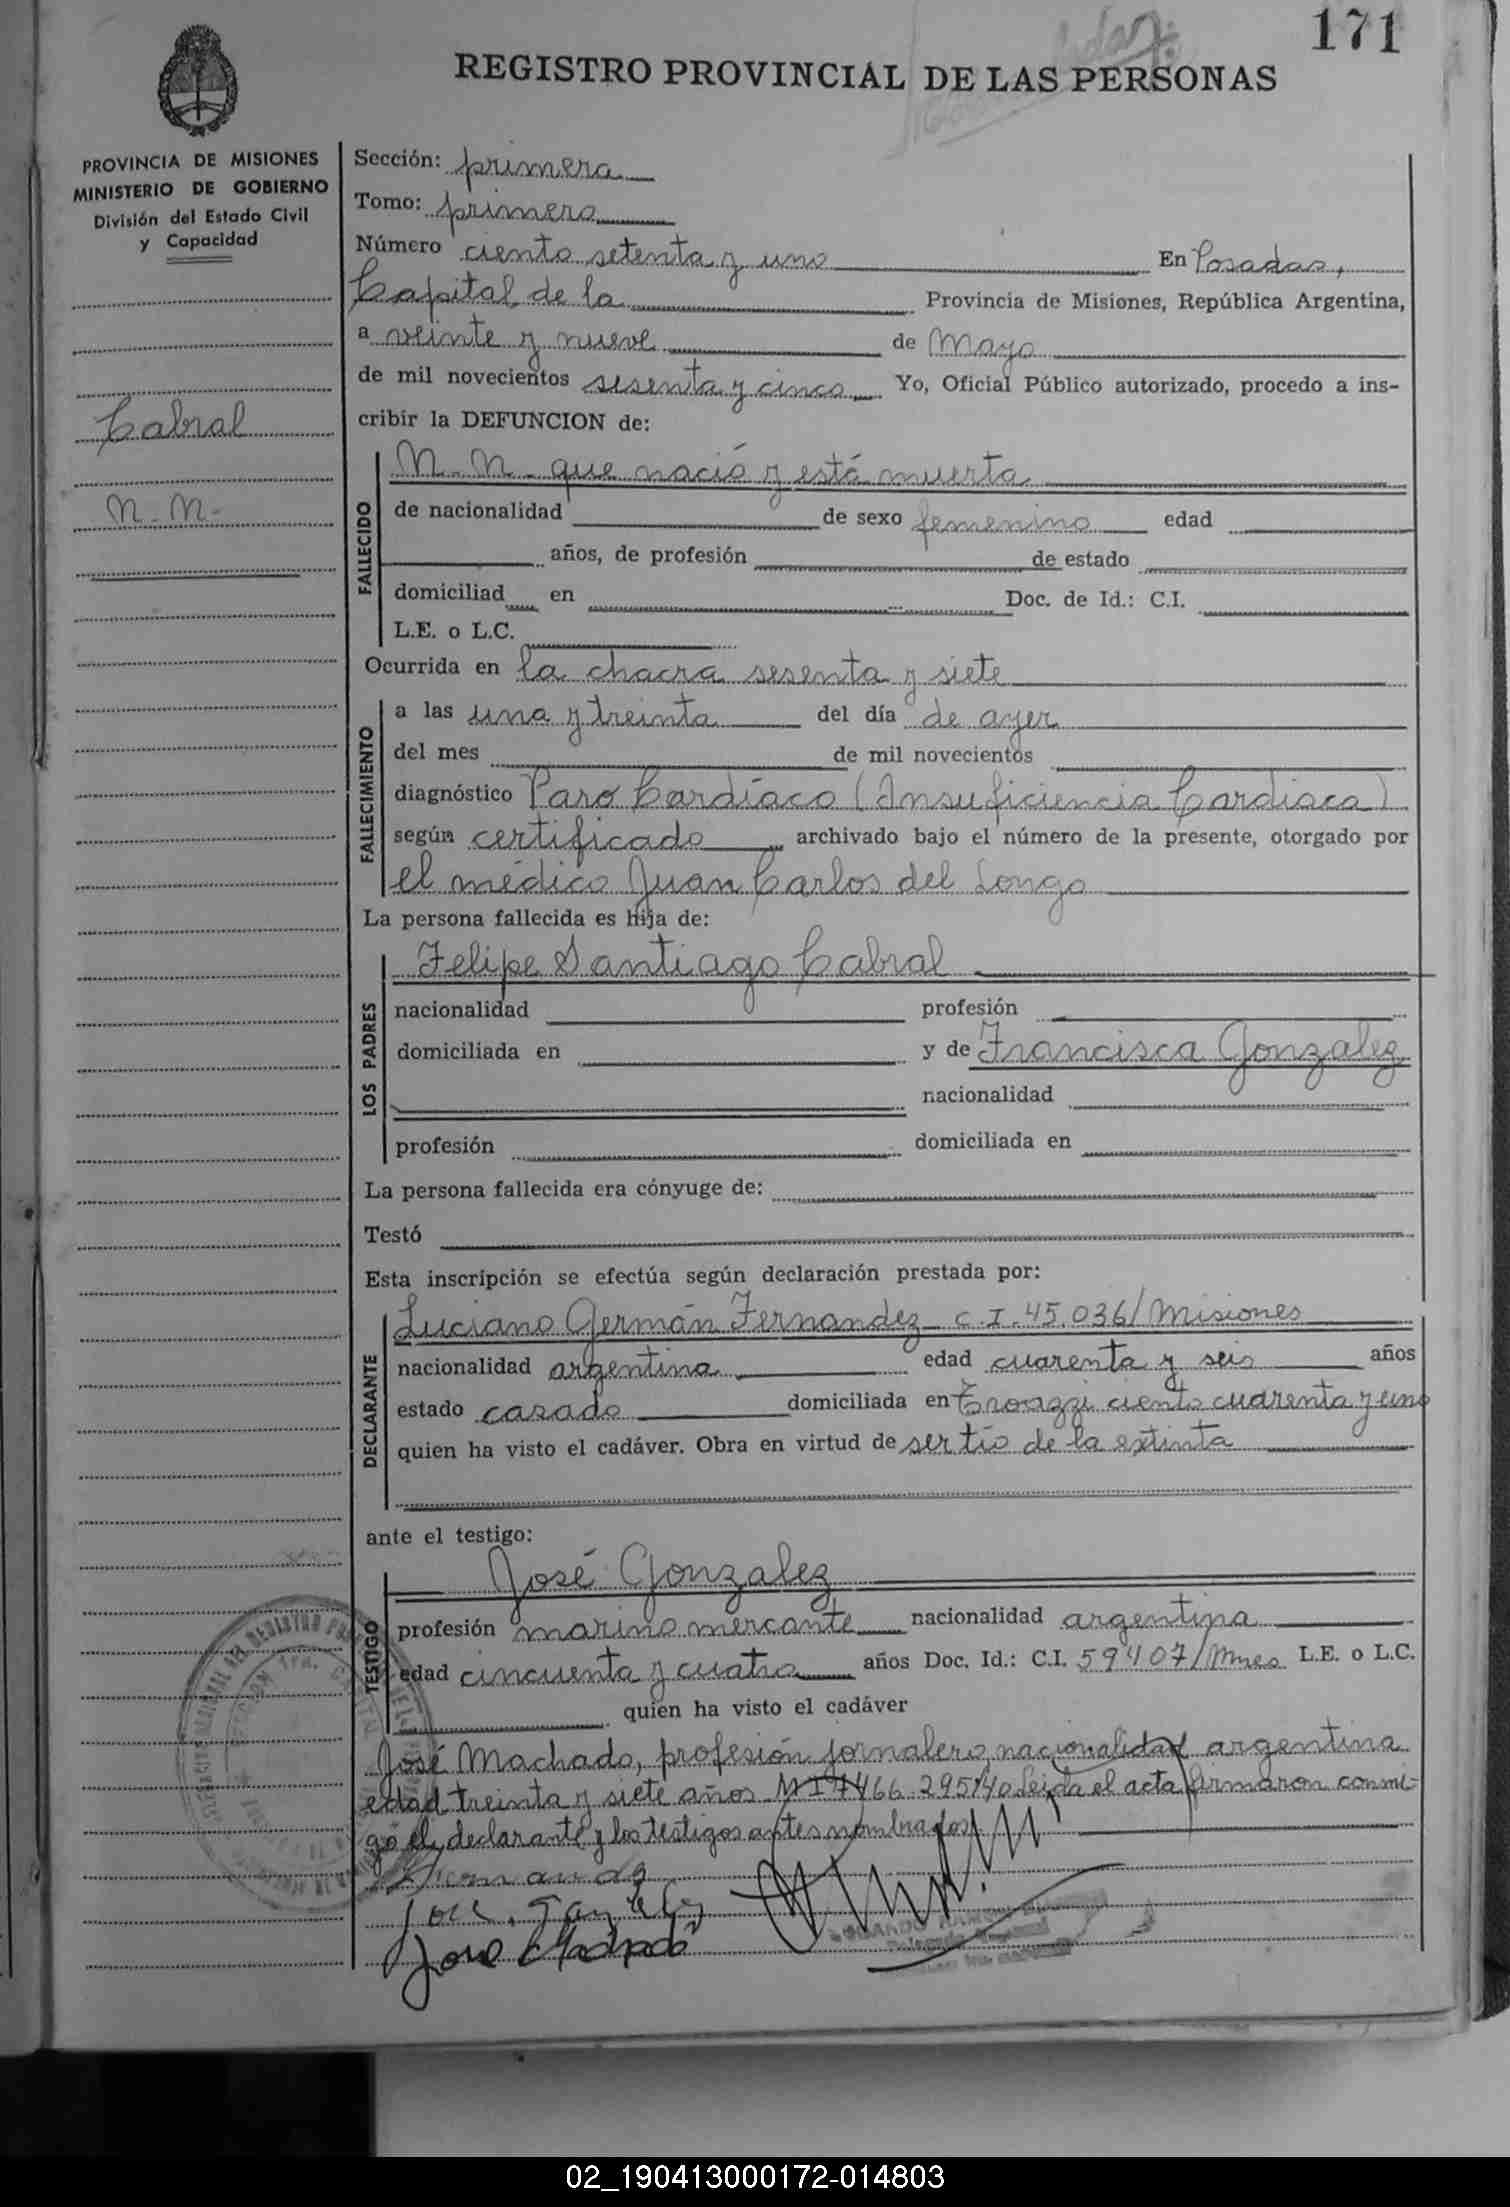 171
REGISTRO PROVINCIAL DE LAS PERSONAS
PROVINCIA DE MISIONES
MINISTERIO DE GOBIERNO
División del Estado Civil
y Capacidad
Cabral
N. N.
Sección: primera
Tomo: primero
Número ciento setenta y uno En Posadas,
Capital de la Provincia de Misiones, República Argentina,
a veinte y nueve de Mayo
de mil novecientos sesenta y cinco Yo, Oficial Público autorizado, procedo a ins-
cribir la DEFUNCION de:
FALLECIDO
N. N. que nació y está muerta
de nacionalidad de sexo femenino edad
años, de profesión de estado
domiciliad en Doc. de Id.: C.I.
L.E. o L.C.
Ocurrida en la chacra sesenta y siete
FALLECIMIENTO
a las una y treinta del día de ayer
del mes de mil novecientos
diagnóstico Paro Cardíaco (Insuficiencia Cardiaca)
según certificado archivado bajo el número de la presente, otorgado por
el médico Juan Carlos del Longo
La persona fallecida es hija de:
LOS PADRES
Felipe Santiago Cabral
nacionalidad profesión
domiciliada en y de Francisca Gonzalez
nacionalidad
profesión domiciliada en
La persona fallecida era cónyuge de:
Testó
Esta inscripción se efectúa según declaración prestada por:
DECLARANTE
Luciano Germán Fernandez C.I. 45.036/Misiones
nacionalidad argentina edad cuarenta y seis años
estado casado domiciliada en ciento cuarenta y uno
quien ha visto el cadáver. Obra en virtud de ser tío de la extinta
ante el testigo:
TESTIGO
José Gonzalez
profesión marino mercante nacionalidad argentina
edad cincuenta y cuatro años Doc. Id.: C.I. 59407/Mnes L.E. o L.C.
quien ha visto el cadáver
José Machado, profesión jornalero, nacionalidad argentina
edad treinta y siete años Leída el acta firmaron conmi-
go el declarante y los testigos antes nombrados
Jose Machado
02_190413000172-014803